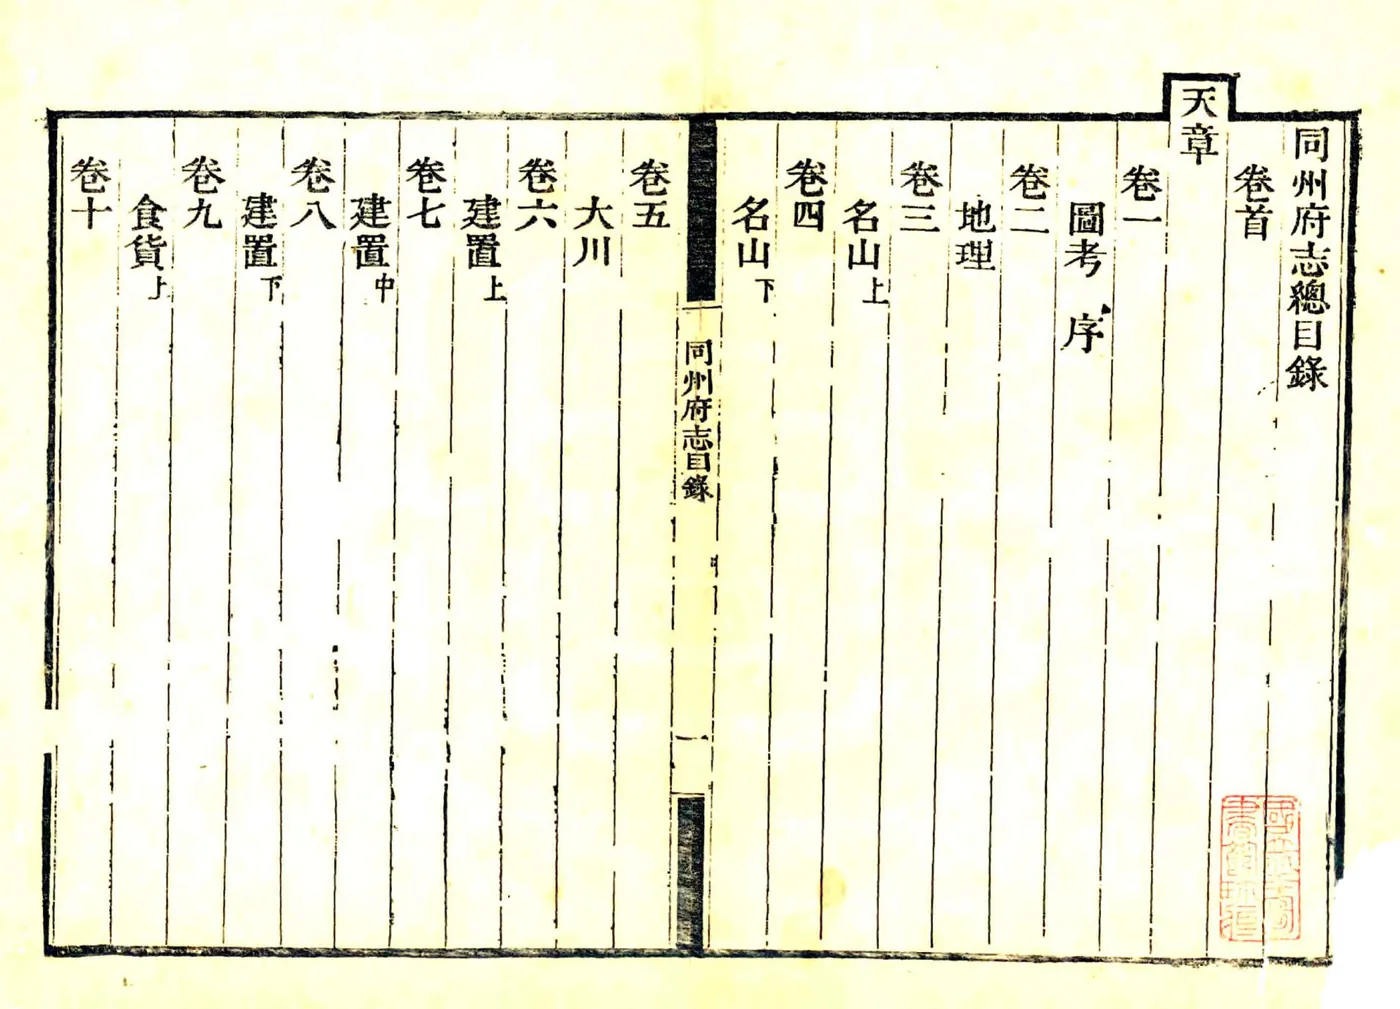 同州府志總目錄
卷首
天章
卷一
圖考 序
卷二
地理
卷三
名山上
卷四
名山下
同州府志目錄
一
卷五
大川
卷六
建置上
卷七
建置中
卷八
建置下
卷九
食貨上
卷十